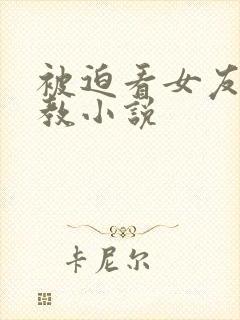 被迫看女友
教小说
卡尼尔